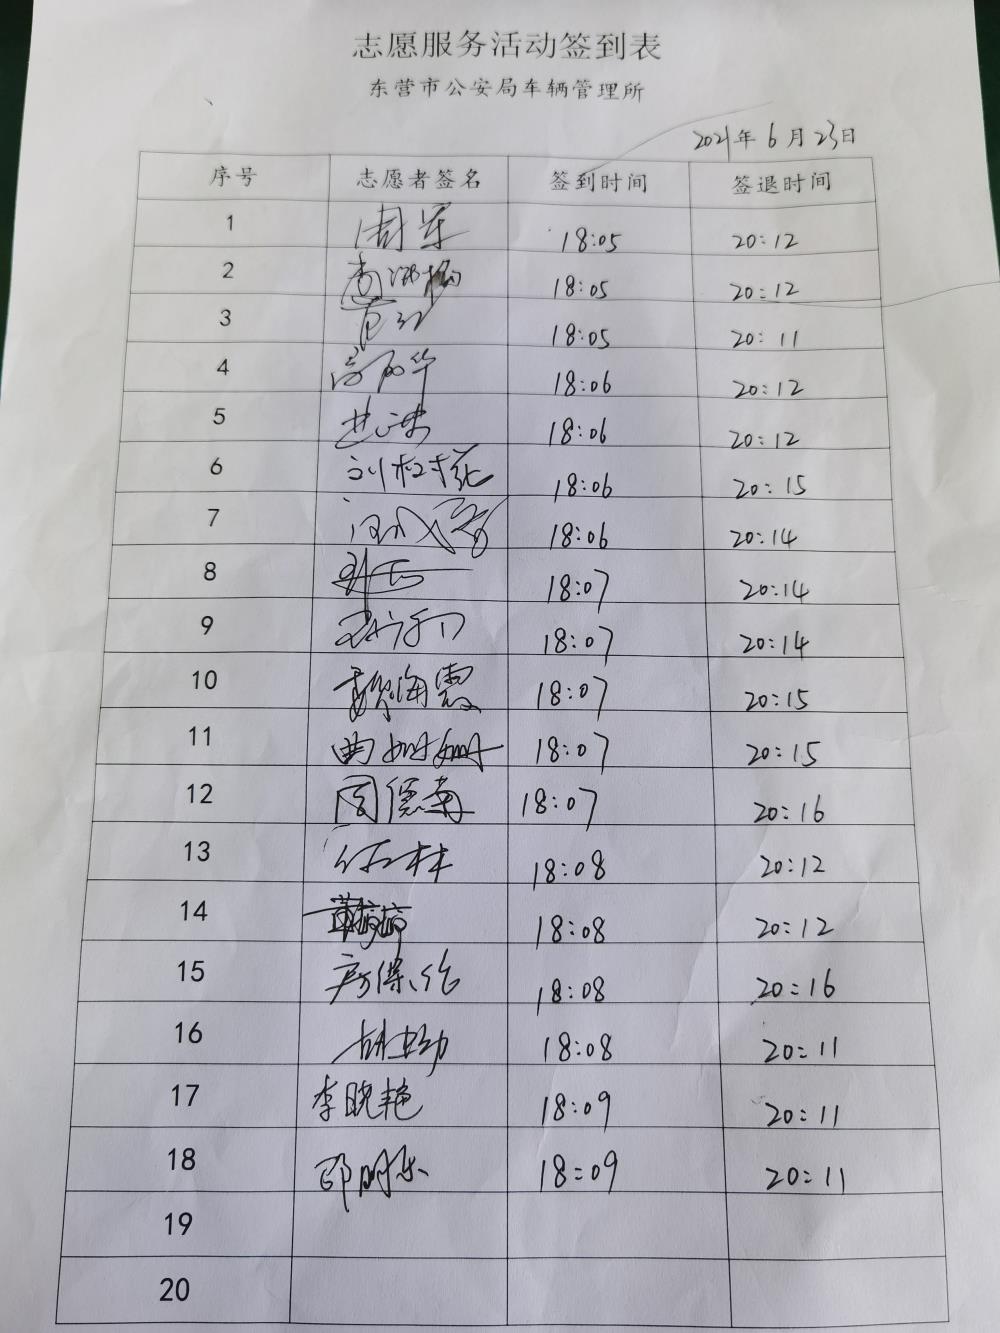 志愿服务活动签到表
东营市公安局车辆管理所
2021年6月23日
序号 志愿者签名 签到时间 签退时间
1 周军 18:05 20:12
2 18:05 20:12
3 18:05 20:11
4 高丽华 18:06 20:12
5 18:06 20:12
6 18:06 20:15
7 18:06 20:14
8 18:07 20:14
9 18:07 20:14
10 魏海霞 18:07 20:15
11 曲姗姗 18:07 20:15
12 周德南 18:07 20:16
13 任林 18:08 20:12
14 18:08 20:12
15 18:08 20:16
16 18:08 20:11
17 李晓艳 18:09 20:11
18 邵明东 18:09 20:11
19
20